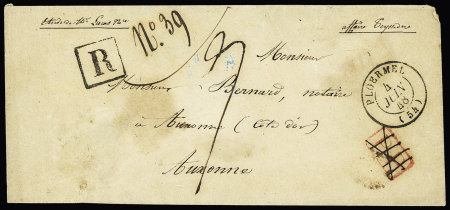 Etude de Me Lucas Nre
affaire Teyssèdre
R
No. 39
Monsieur
Monsieur Bernard, notaire
à Auxonne (Côte d'or)
Auxonne
PLOERMEL
4
JUIN
48
(54)